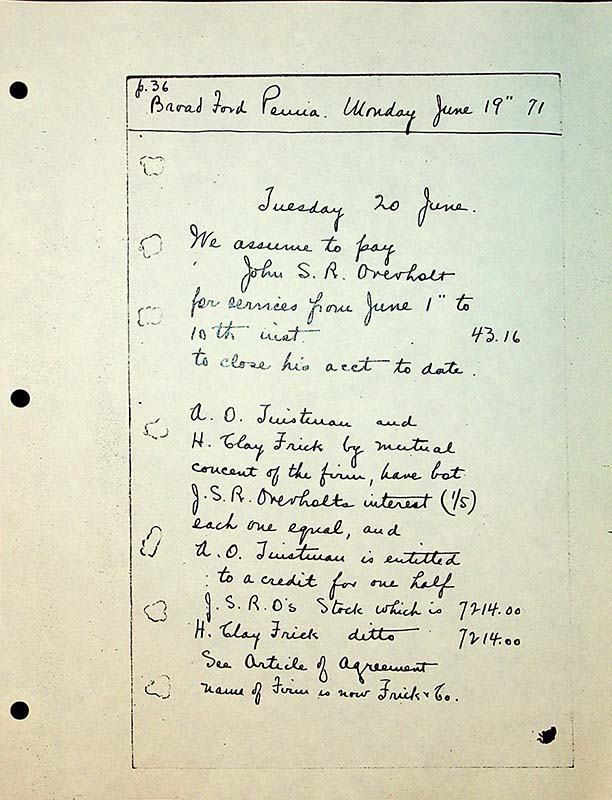 p. 36
Broad Ford Penna. Monday June 19" 71
Tuesday 20 June.
We assume to pay
John S. R. Overholt
for services from June 1" to
10th inst. 43.16
to close his acct to date.
A. O. Tinstman and
H. Clay Frick by mutual
concent of the firm, have bot
J.S.R. Overholts interest (1/5)
each one equal, and
A. O. Tinstman is entitled
to a credit for one half
J.S.R.O's Stock which is 7214.00
H. Clay Frick ditto 7214.00
See Article of Agreement
name of Firm is now Frick & Co.